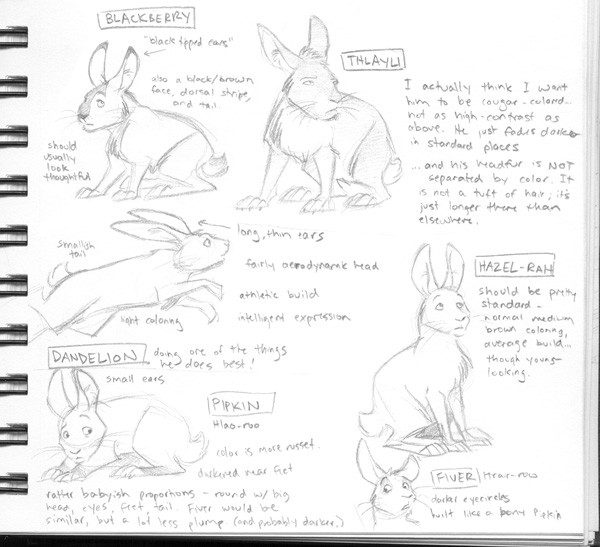 BLACKBERRY
"black tipped ears"
also a black/brown
face, dorsal stripe,
and tail.
should
usually
look
thoughtful
THLAYLI
I actually think I want
him to be cougar-colored...
not as high-contrast as
above. He just fades darker
in standard places
...and his headfur is NOT
separated by color. It
is not a tuft of hair, it's
just longer there than
elsewhere.
long, thin ears
smallish
tail
fairly aerodynamic head
athletic build
light coloring
intelligent expression
DANDELION doing one of the things
he does best!
HAZEL-RAH
should be pretty
standard -
normal medium
brown coloring,
average build...
though young-
looking.
small ears
PIPKIN
Hlao-roo
color is more russet.
darkened near feet
rather babyish proportions - round w/ big
head, eyes, feet, tail. Fiver would be
similar, but a lot less plump. (and probably darker.)
FIVER/Hrair-roo
darker eyecircles
built like a bony Pipkin